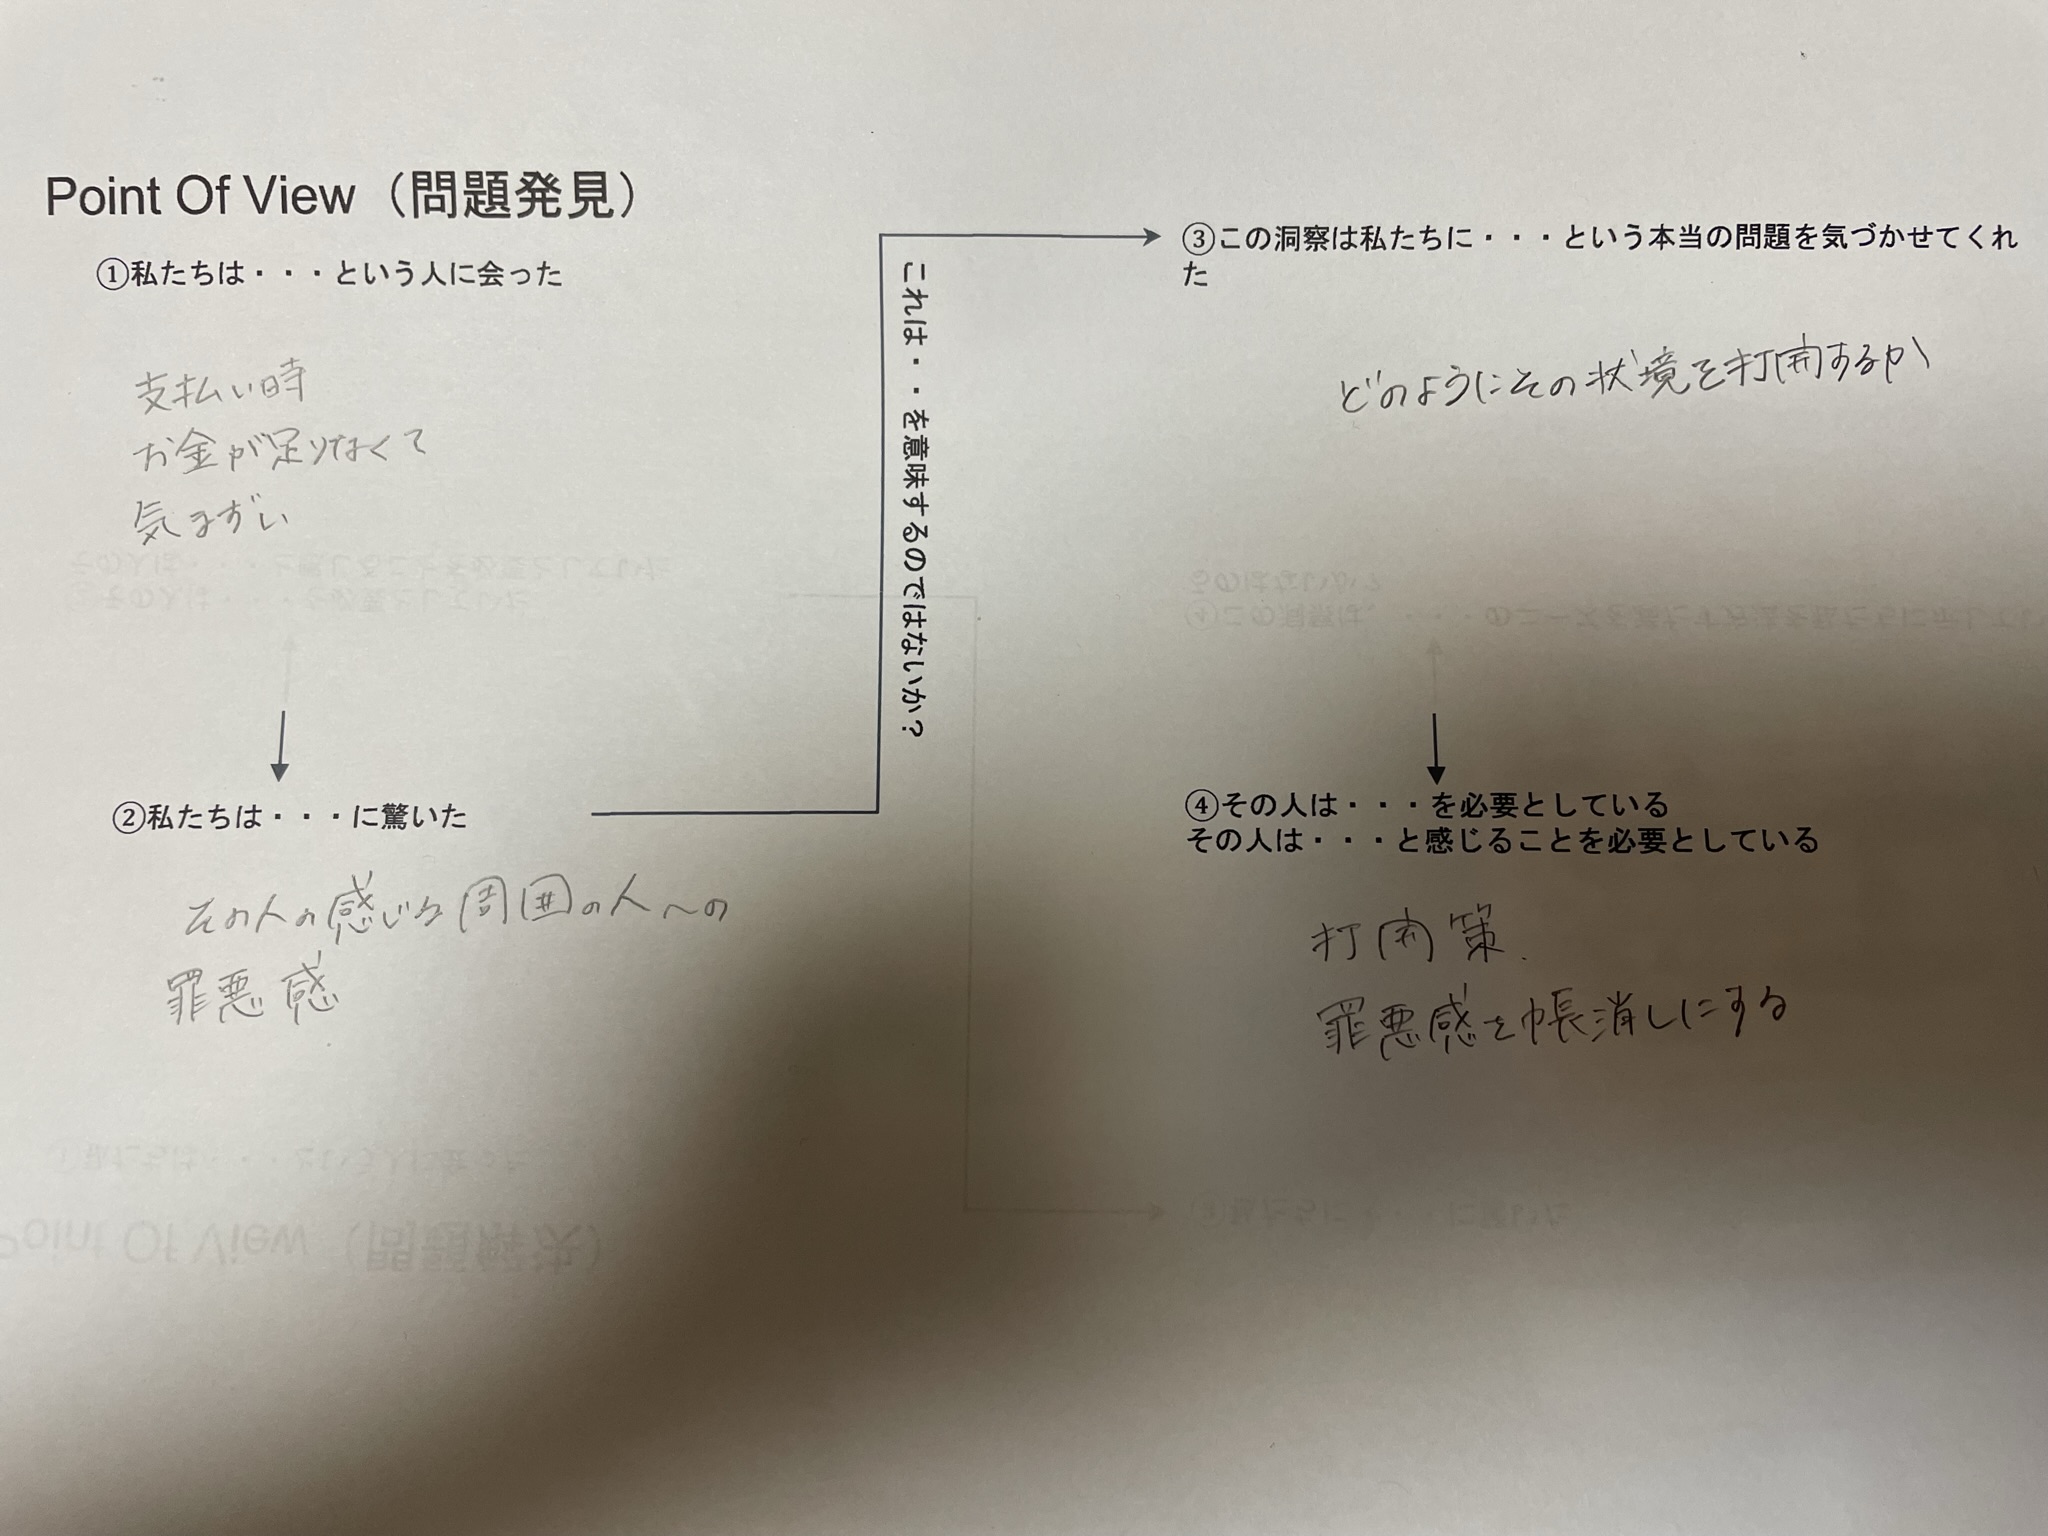 Point Of View（問題発見）
①私たちは・・・という人に会った
支払い時
お金が足りなくて
気まずい
②私たちは・・・に驚いた
その人の感じる周囲の人への
罪悪感
これは・・を意味するのではないか？
③この洞察は私たちに・・・という本当の問題を気づかせてくれ
た
どのようにその状境を打開するか
④その人は・・・を必要としている
その人は・・・と感じることを必要としている
打開策.
罪悪感を帳消しにする